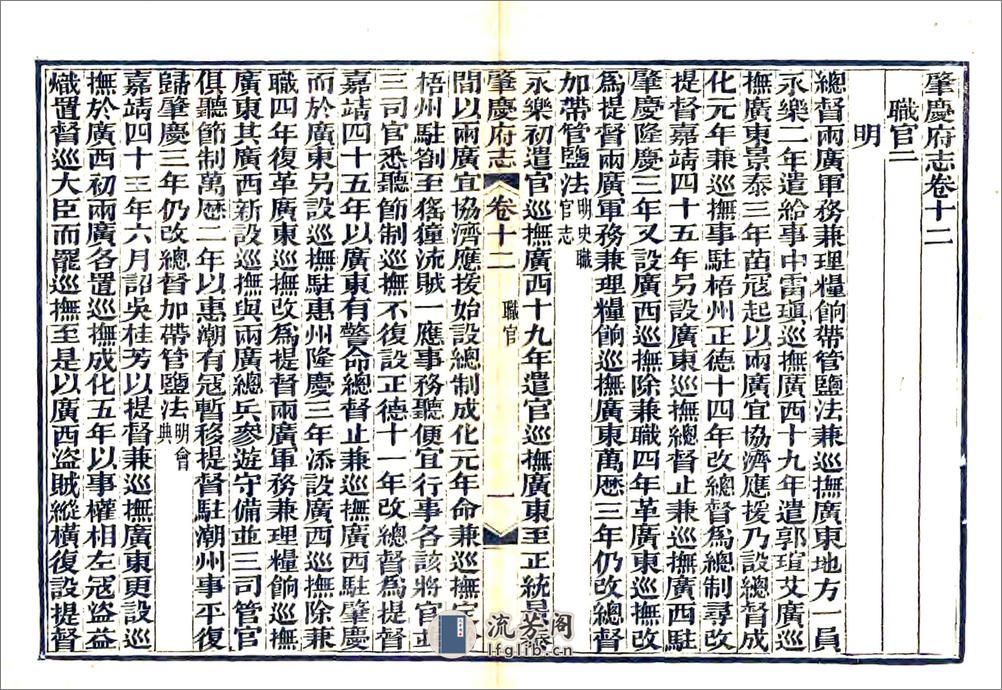 肇慶府志卷十二
職官二
明
總督兩廣軍務兼理糧餉帶管鹽法兼巡撫廣東地方一員
永樂二年遣給事中雷瑱巡撫廣西十九年遣郭瑄艾廣巡
撫廣東景泰三年苗寇起以兩廣宜協濟應援乃設總督成
化元年兼巡撫事駐梧州正德十四年改總督為總制尋改
提督嘉靖四十五年另設廣東巡撫總督止兼巡撫廣西駐
肇慶隆慶三年又設廣西巡撫除兼職四年革廣東巡撫改
為提督兩廣軍務兼理糧餉巡撫廣東萬厯三年仍改總督
加帶管鹽法明史職官志
永樂初遣官巡撫廣西十九年遣官巡撫廣東至正統景泰
間以兩廣宜協濟應援始設總制成化元年命兼巡撫
肇慶府志 卷十二 職官 一
梧州駐劄至猺獞流賊一應事務聽便宜行事各該將官並
三司官悉聽節制巡撫不復設正德十一年改總督為提督
嘉靖四十五年以廣東有警命總督止兼巡撫廣西駐肇慶
而於廣東另設巡撫駐惠州隆慶三年添設廣西巡撫除兼
職四年復革廣東巡撫改為提督兩廣軍務兼理糧餉巡撫
廣東其廣西新設巡撫與兩廣總兵參遊守備並三司管官
俱聽節制萬厯二年以惠潮有寇暫移提督駐潮州事平復
歸肇慶三年仍改總督加帶管鹽法明會典
嘉靖四十三年六月詔吳桂芳以提督兼巡撫廣東更設巡
撫於廣西初兩廣各置巡撫成化五年以事權相左寇盜益
熾置督巡大臣而罷巡撫至是以廣西盜賊縱橫復設提督
流芳阁
lfglib.cn